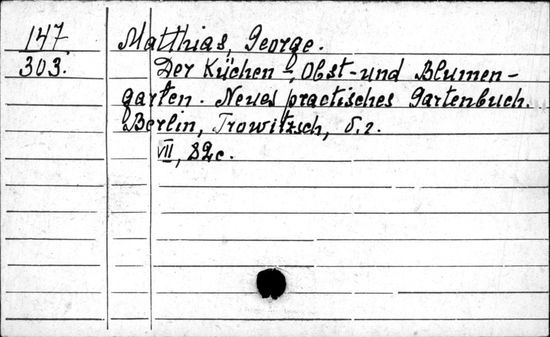 147. Matthias, George.
303. Der Küchen-, Obst- und Blumen-
garten. Neues practisches Gartenbuch.
Berlin, Trowitzsch, б.г.
VII, 82с.